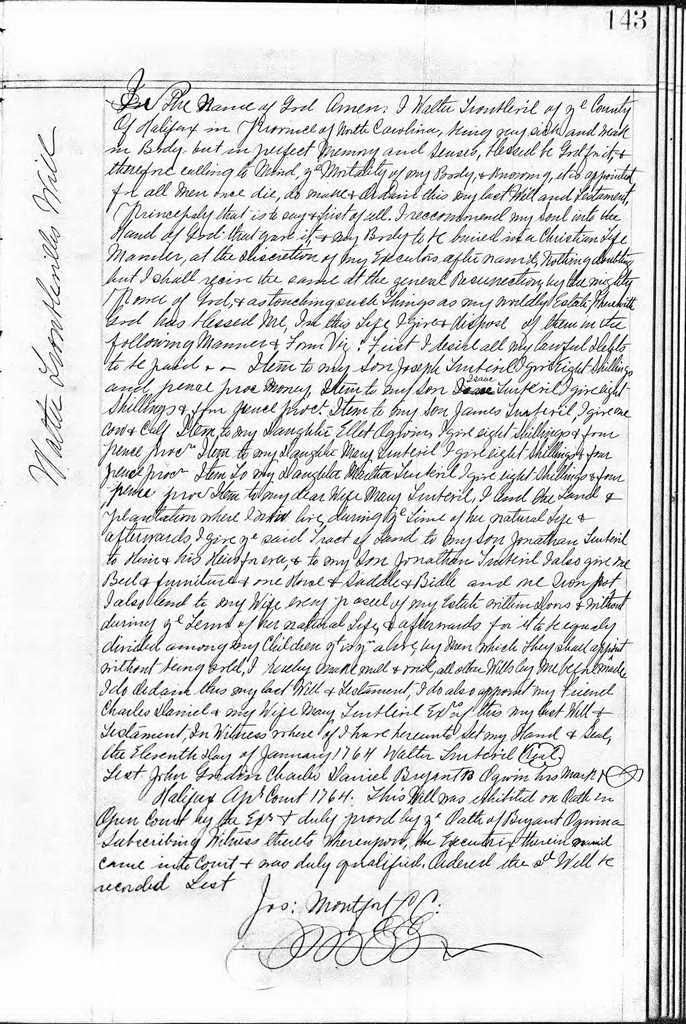 143
Walter Turntevills Will
In The Name of God Amen: I Walter of ye County
Of Halifax in Province of North Carolina, being very sick and weak
in Body, but in perfect Memory and Senses, blessed be God for it, &
therefore calling to Mind, ye Mortality of my Body, & knowing, it is appointed
for all Men once die, do make & Ordain this my last Will and Testament,
Principaly that is to say & first of all. I recommend my Soul into the
Hand of God that gave it, & my Body to be buried in a Christian Life
Manner, at the discretion of my Executors after named, Nothing doubting
but I shall receive the same at the general Resurrection, by the mighty
Power of God, & as touching such Things as my worldly Estate, Wherewith
God has blessed Me, In this Life, I give & dispose of them in the
following Manner & Form Viz: First I desire all my lawful Debts
to be paid - - Item to my Son Joseph Turtevil I give Eight Shillings
and pence proc money Item to my Son Isaac Turtevil I give eight
Shillings & four pence proc: Item to my son James Turtevil, I give one
Cow & Calf Item to my Daughter Ogwin, I give eight Shillings & four
pence procr Item to my Daughter Mary Turtevil I give eight Shillings & four
pence procr Item To my Daughter Martha Turtevil I give eight Shillings & four
pence procr Item to my dear Wife Mary Turtevil, I lend the Land &
Plantation where I now live, during ye Time of her natural Life &
afterwards I give ye said Tract of Land to my Son Jonathan Turtevil
to Him & his Heirs for ever, & to my Son Jonathan Turtevil I also give one
Bed & furniture & one Horse & Saddle & Bridle and one Iron pot
I also lend to my Wife every parcel of my Estate within Doors & without
during ye Term of her natural Life, & afterwards for it to be equaly
divided among my Children yt is yn alive, by Men which They shall appoint
without being Sold, I hereby make null & void, all other Wills by Me been made
I do Ordain this my last Will & Testament, I do also appoint my Friend
Charles Daniel & my Wife Mary Exrs of this my last Will &
Testament, In Witness where of I have hereunto Set my Hand & Seal,
the Eleventh Day of January 1764 Walter Turtevil Seal
Test John Gordon Charles Daniel Bryant B Ogwin his mark
Halifax Apr Court 1764. This Will was exhibited on Oath in
Open Court by the Exrs & duly proved by ye Oath of Bryant Ogwin a
Subscribing Witness thereto whereupon, the Executrix therein named
came into Court & was duly qualified. Ordered the sd Will be
recorded Test
Jos: Montfort CC: